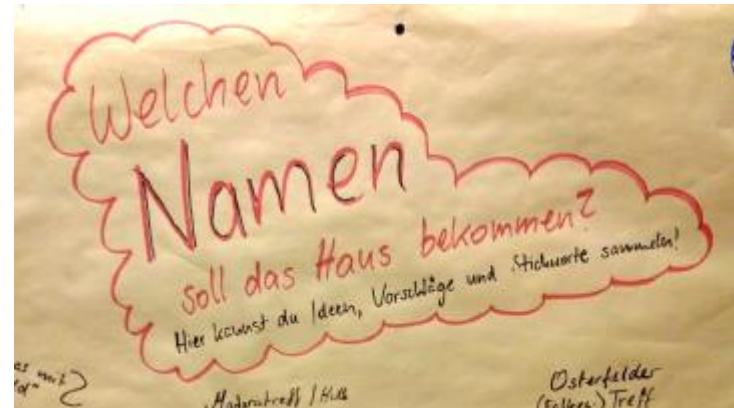 Welchen
Namen
soll das Haus bekommen?
Hier kannst du Ideen, Vorschläge und Stichworte sammeln!
Osterfelder
Treff